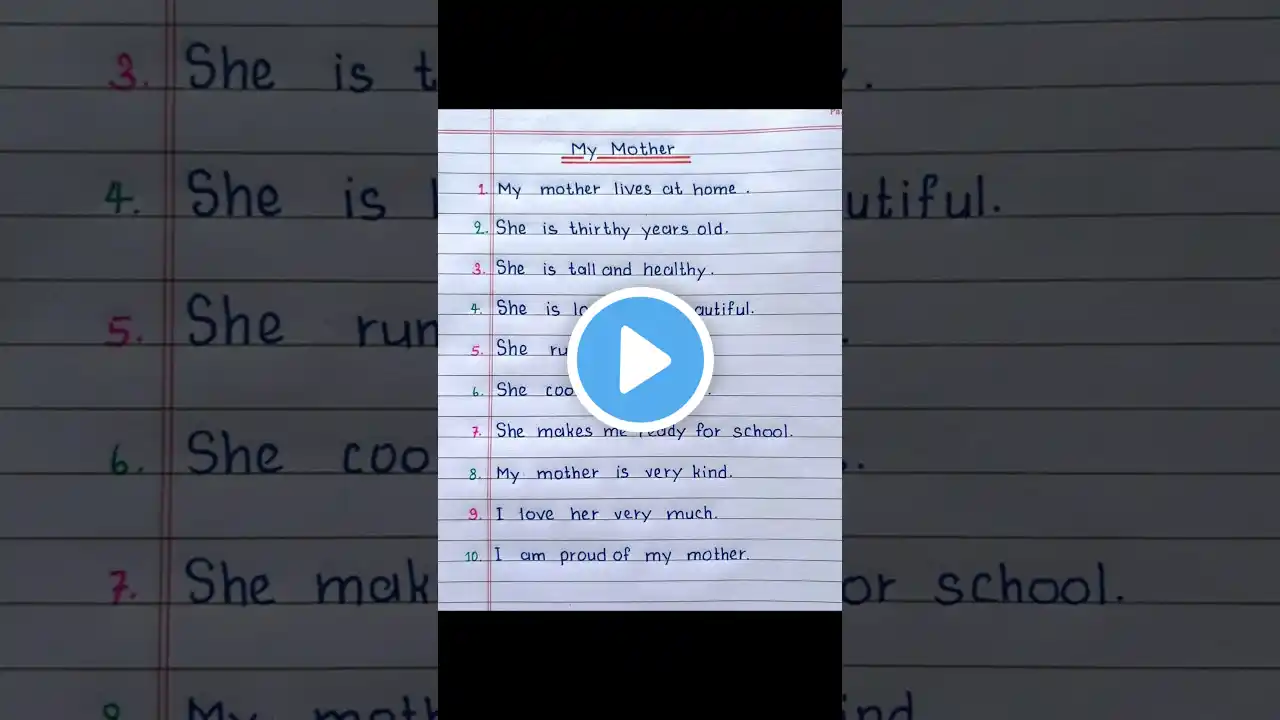 My Mother
1. My mother lives at home.
2. She is thirthy years old.
3. She is tall and healthy.
4. She is
5. She
6. She
7. She makes me ready for school.
8. My mother is very kind.
9. I love her very much.
10. I am proud of my mother.